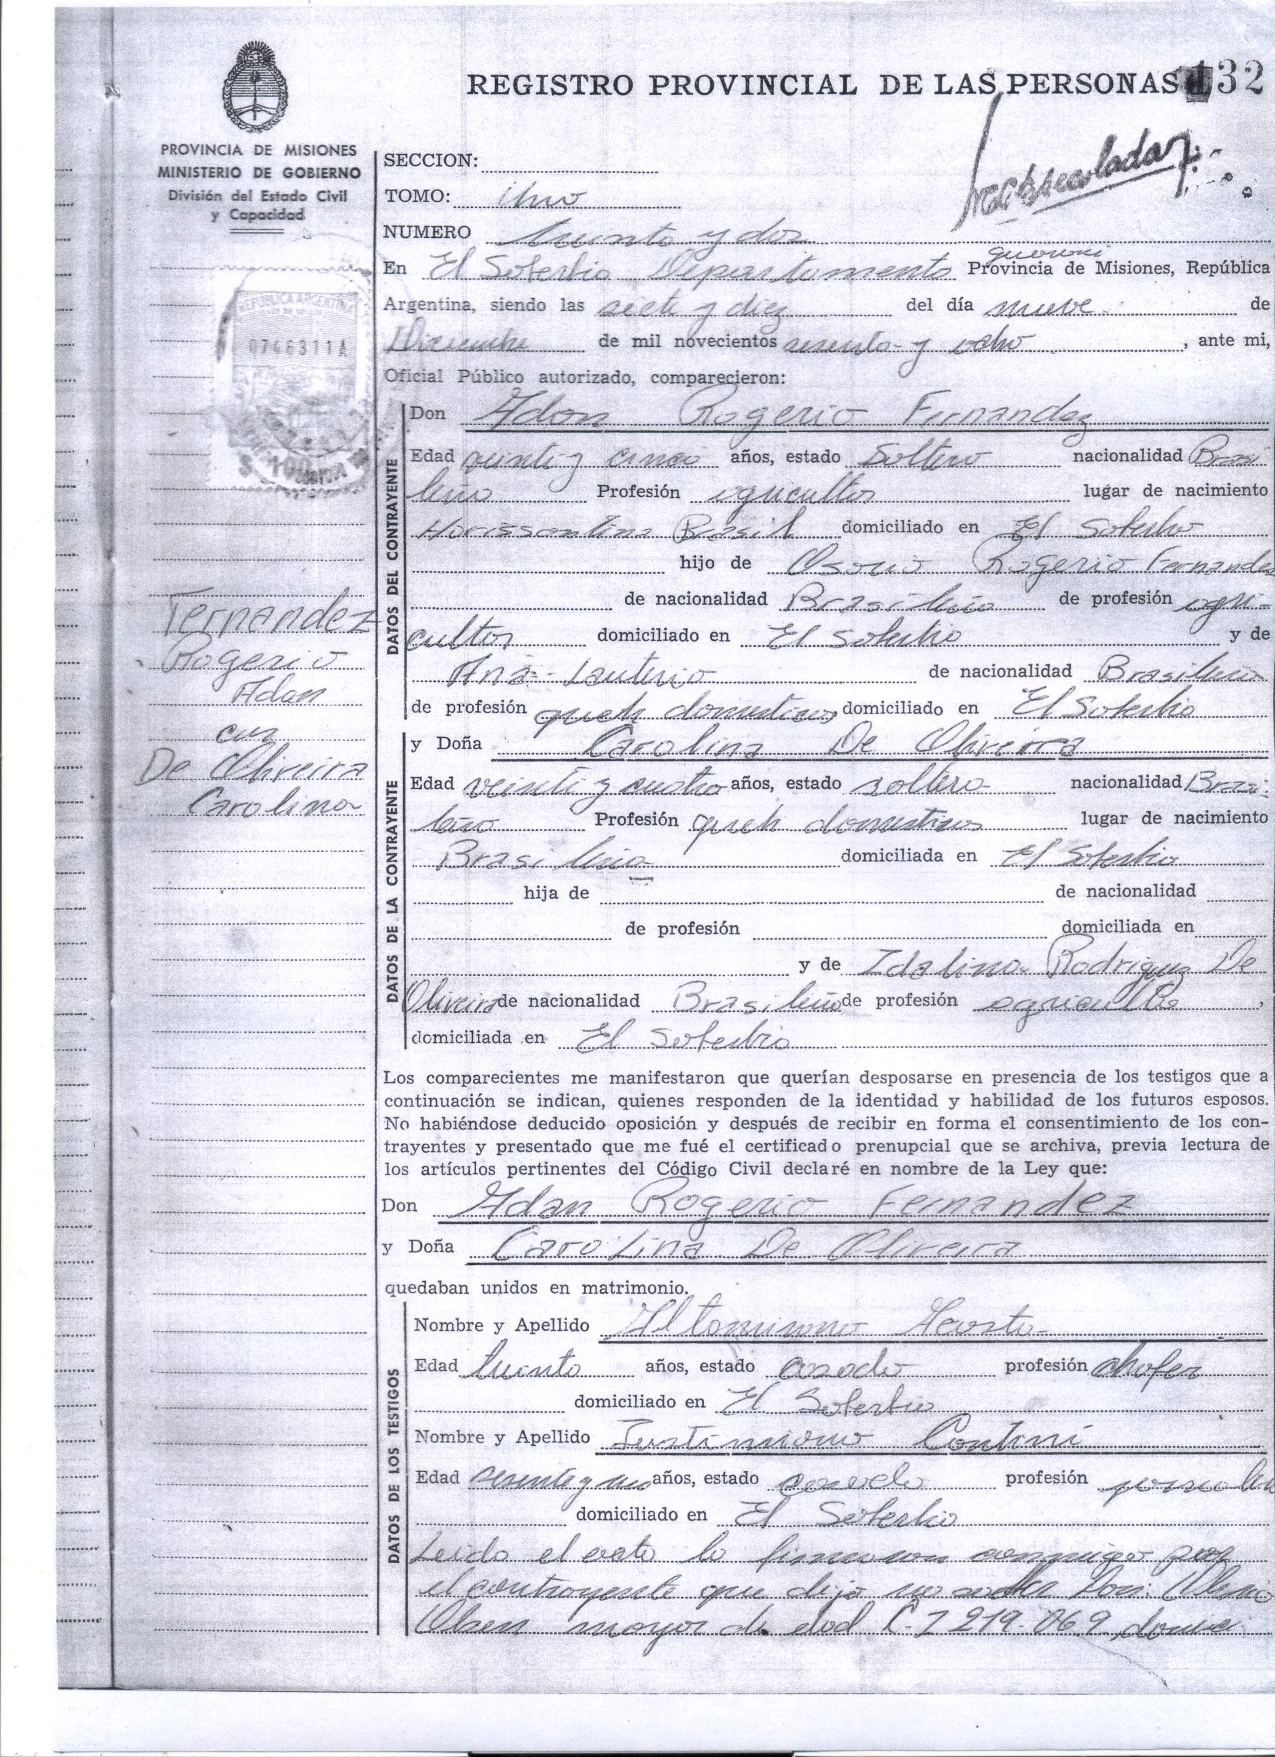 REGISTRO PROVINCIAL DE LAS PERSONAS 132
PROVINCIA DE MISIONES
MINISTERIO DE GOBIERNO
División del Estado Civil
y Capacidad
REPUBLICA ARGENTINA
0746311A
SECCION:
TOMO: Uno
NUMERO treinta y dos
En El Soberbio Departamento guarani Provincia de Misiones, República
Argentina, siendo las siete y diez del día nueve de
Diciembre de mil novecientos sesenta y ocho, ante mi,
Oficial Público autorizado, comparecieron:
DATOS DEL CONTRAYENTE
Don Adan Rogerio Fernandez
Edad veinte y cinco años, estado Soltero nacionalidad Brasi
leño Profesión agricultor lugar de nacimiento
Horissontina Brasil domiciliado en El Soberbio
hijo de Osorio Rogerio Fernandez
de nacionalidad Brasileño de profesión agri-
cultor domiciliado en El Soberbio y de
Ana Lauterio de nacionalidad Brasileña
de profesión queh domesticos domiciliado en El Soberbio
Fernandez
Rogerio
Adan
con
De Oliveira
Carolina
DATOS DE LA CONTRAYENTE
y Doña Carolina De Oliveira
Edad veinti y cuatro años, estado soltera nacionalidad Brasi-
leña Profesión queh domesticos lugar de nacimiento
Brasileña domiciliada en El Soberbio
hija de de nacionalidad
de profesión domiciliada en
y de Idalino Rodriguez De
Oliveira de nacionalidad Brasileño de profesión agricultor,
domiciliada en El Soberbio
Los comparecientes me manifestaron que querían desposarse en presencia de los testigos que a
continuación se indican, quienes responden de la identidad y habilidad de los futuros esposos.
No habiéndose deducido oposición y después de recibir en forma el consentimiento de los con-
trayentes y presentado que me fué el certificado prenupcial que se archiva, previa lectura de
los artículos pertinentes del Código Civil declaré en nombre de la Ley que:
Don Adan Rogerio Fernandez
y Doña Carolina De Oliveira
quedaban unidos en matrimonio.
DATOS DE LOS TESTIGOS
Nombre y Apellido Altamirano Acosta
Edad treinta años, estado casado profesión chofer
domiciliado en El Soberbio
Nombre y Apellido Justiniano Contini
Edad sesenta y uno años, estado casado profesión jornalero
domiciliado en El Soberbio
Leido el acta la firmaron conmigo por
el contrayente que dijo no saber Don:
Olsen mayor de edad C.I 219.069 domici